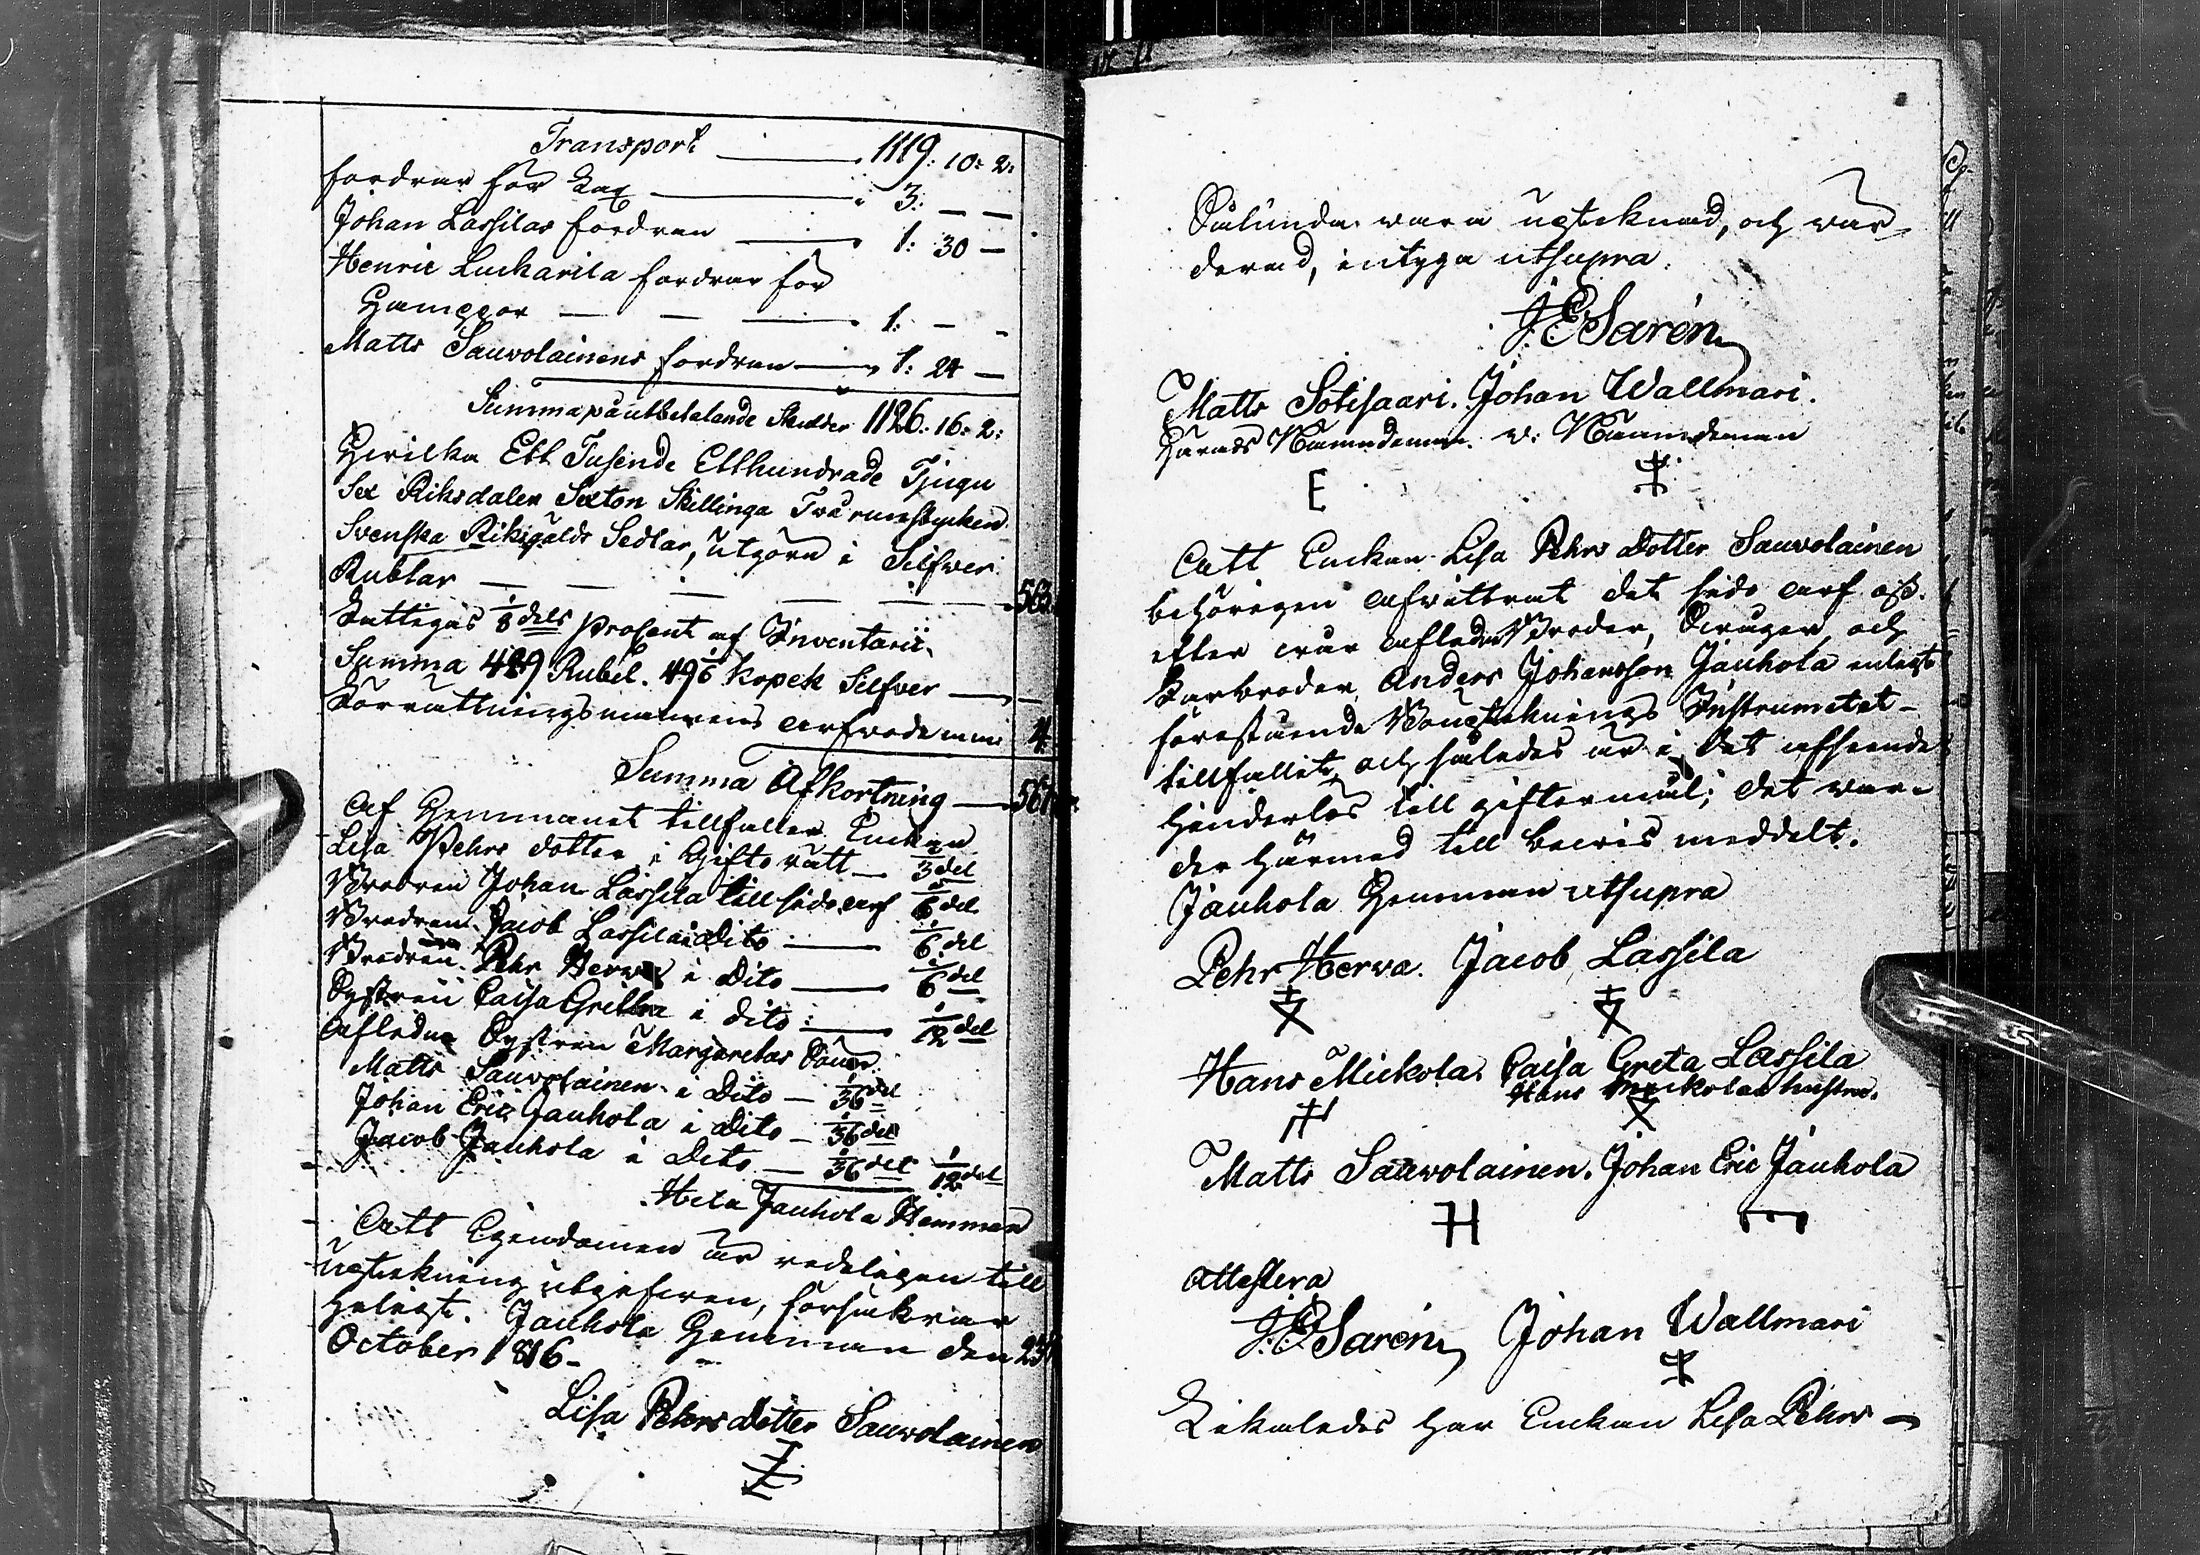 Transport 1119: 10: 2:
fordrar för Lax 3. — —
Johan Lassilas fordran 1: 30 —
Henric Lucharila fordrar för
Hampor 1: — —
Matts Sauvolainens fordran 1: 24 —
Summa på utbetalande Skulder 1126: 16: 2:
Hvilka Ett Tusende Etthundrade Tjugu
Sex Riksdaler Sexton Skillinga Två runstycken
Svenska Riksgälds Sedlar, utgöra i Silfver
Rublar 563
Fattigas 1/8 dels Prosent af Inventarii
Summa 489 Rubel. 49 kopek Silfver
Förrättningsmannens arfvode 4
Summa Afkortning 567
Af Hemmanet tillfaller Enckan
Lisa Pehrs dotter i Giftorätt — 1/3 del
Brodren Johan Lassila till sido arf 1/6 del
Brodren Jacob Lassila i Dito 1/6 del
Brodren Pehr Herva i Dito 1/6 del
Systren Caisa Greta i dito 1/12 del
Afledna Systren Margaretas Söner
Matts Sauvolainen i Dito — 1/36 del
Johan Eric Jauhola i Dito — 1/36 del
Jacob Jauhola i Dito — 1/36 del 1/12 del
Hela Jauhola Hemman
Att Egendomen är redeligen till
upteckning utgifven, försäkrar
Jauhola Hemman den 23
October 1816 —
Lisa Pehrs dotter Sauvolainen
Sålunda vara uptecknad, och vär-
derad, intyga utsupra.
J E Sarén
Matts Sotisaari. Johan Wallmari.
Härads Nämndeman. v: Nämndeman
E
Att Enckan Lisa Pehrs dotter Sauvolainen
behörigen afvittrat det sido arf oss.
efter vår afledne Broder, Svåger och
Farbroder Anders Johansson Jauhola enligt
förestående Bouptecknings Instrumetet
tillfallit, och således är i det afseende
hinderlös till giftermål; det var-
der härmed till bevis meddelt.
Jauhola Hemman utsupra
Pehr Herva. Jacob Lassila
Hans Mickola. Caisa Greta Lassila
Hans Mickolas hustru.
Matts Sauvolainen. Johan Eric Jauhola
H
attestera
J. E Sarén Johan Wallmari
Likaledes har Enckan Lisa Pehrs —